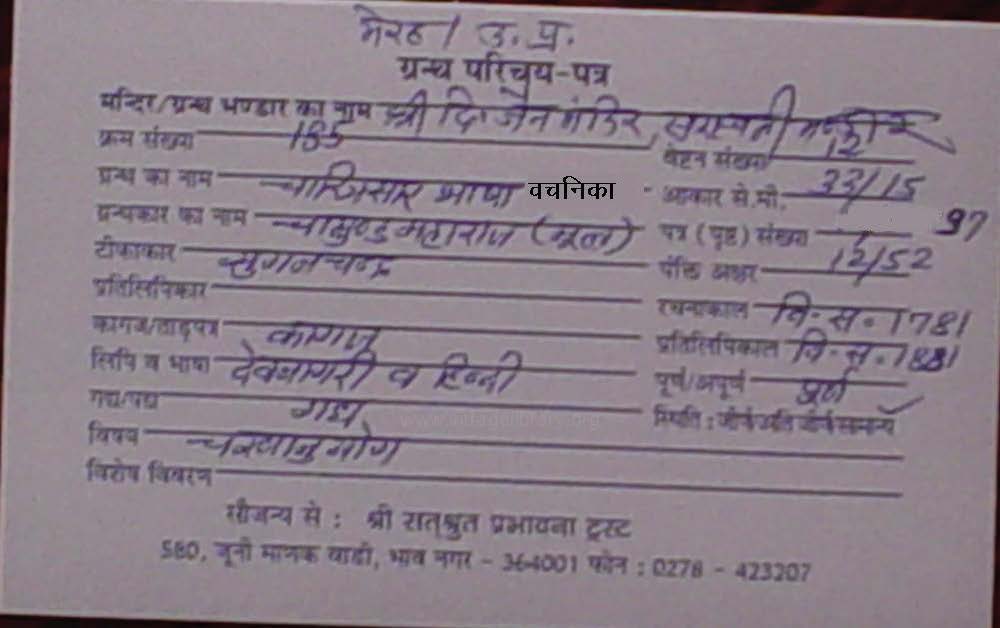 मेरठ / उ. प्र.
ग्रन्थ परिचय-पत्र
मन्दिर/ग्रन्थ भण्डार का नाम श्री दि. जैन मंदिर, सरस्वती भण्डार
क्रम संख्या 185 वेष्टन संख्या 12
ग्रन्थ का नाम चारित्रसार भाषा वचनिका आकार से.मी. 33/15
ग्रन्थकार का नाम चामुण्ड महाराज (मूल) पत्र (पृष्ठ) संख्या 97
टीकाकार सुगनचन्द्र पंक्ति अक्षर 12/52
प्रतिलिपिकार रचनाकाल वि. स. 1781
कागज/ताड़पत्र कागज प्रतिलिपिकाल वि. स. 1881
लिपि व भाषा देवनागरी व हिन्दी पूर्ण/अपूर्ण पूर्ण
गद्य/पद्य गद्य स्थिति : जीर्ण अति जीर्ण सामान्य
विषय चरणानुयोग
विशेष विवरण
सौजन्य से : श्री सत्श्रुत प्रभावना ट्रस्ट
580, जूनी माणक वाडी, भाव नगर - 364001 फोन : 0278 - 423207